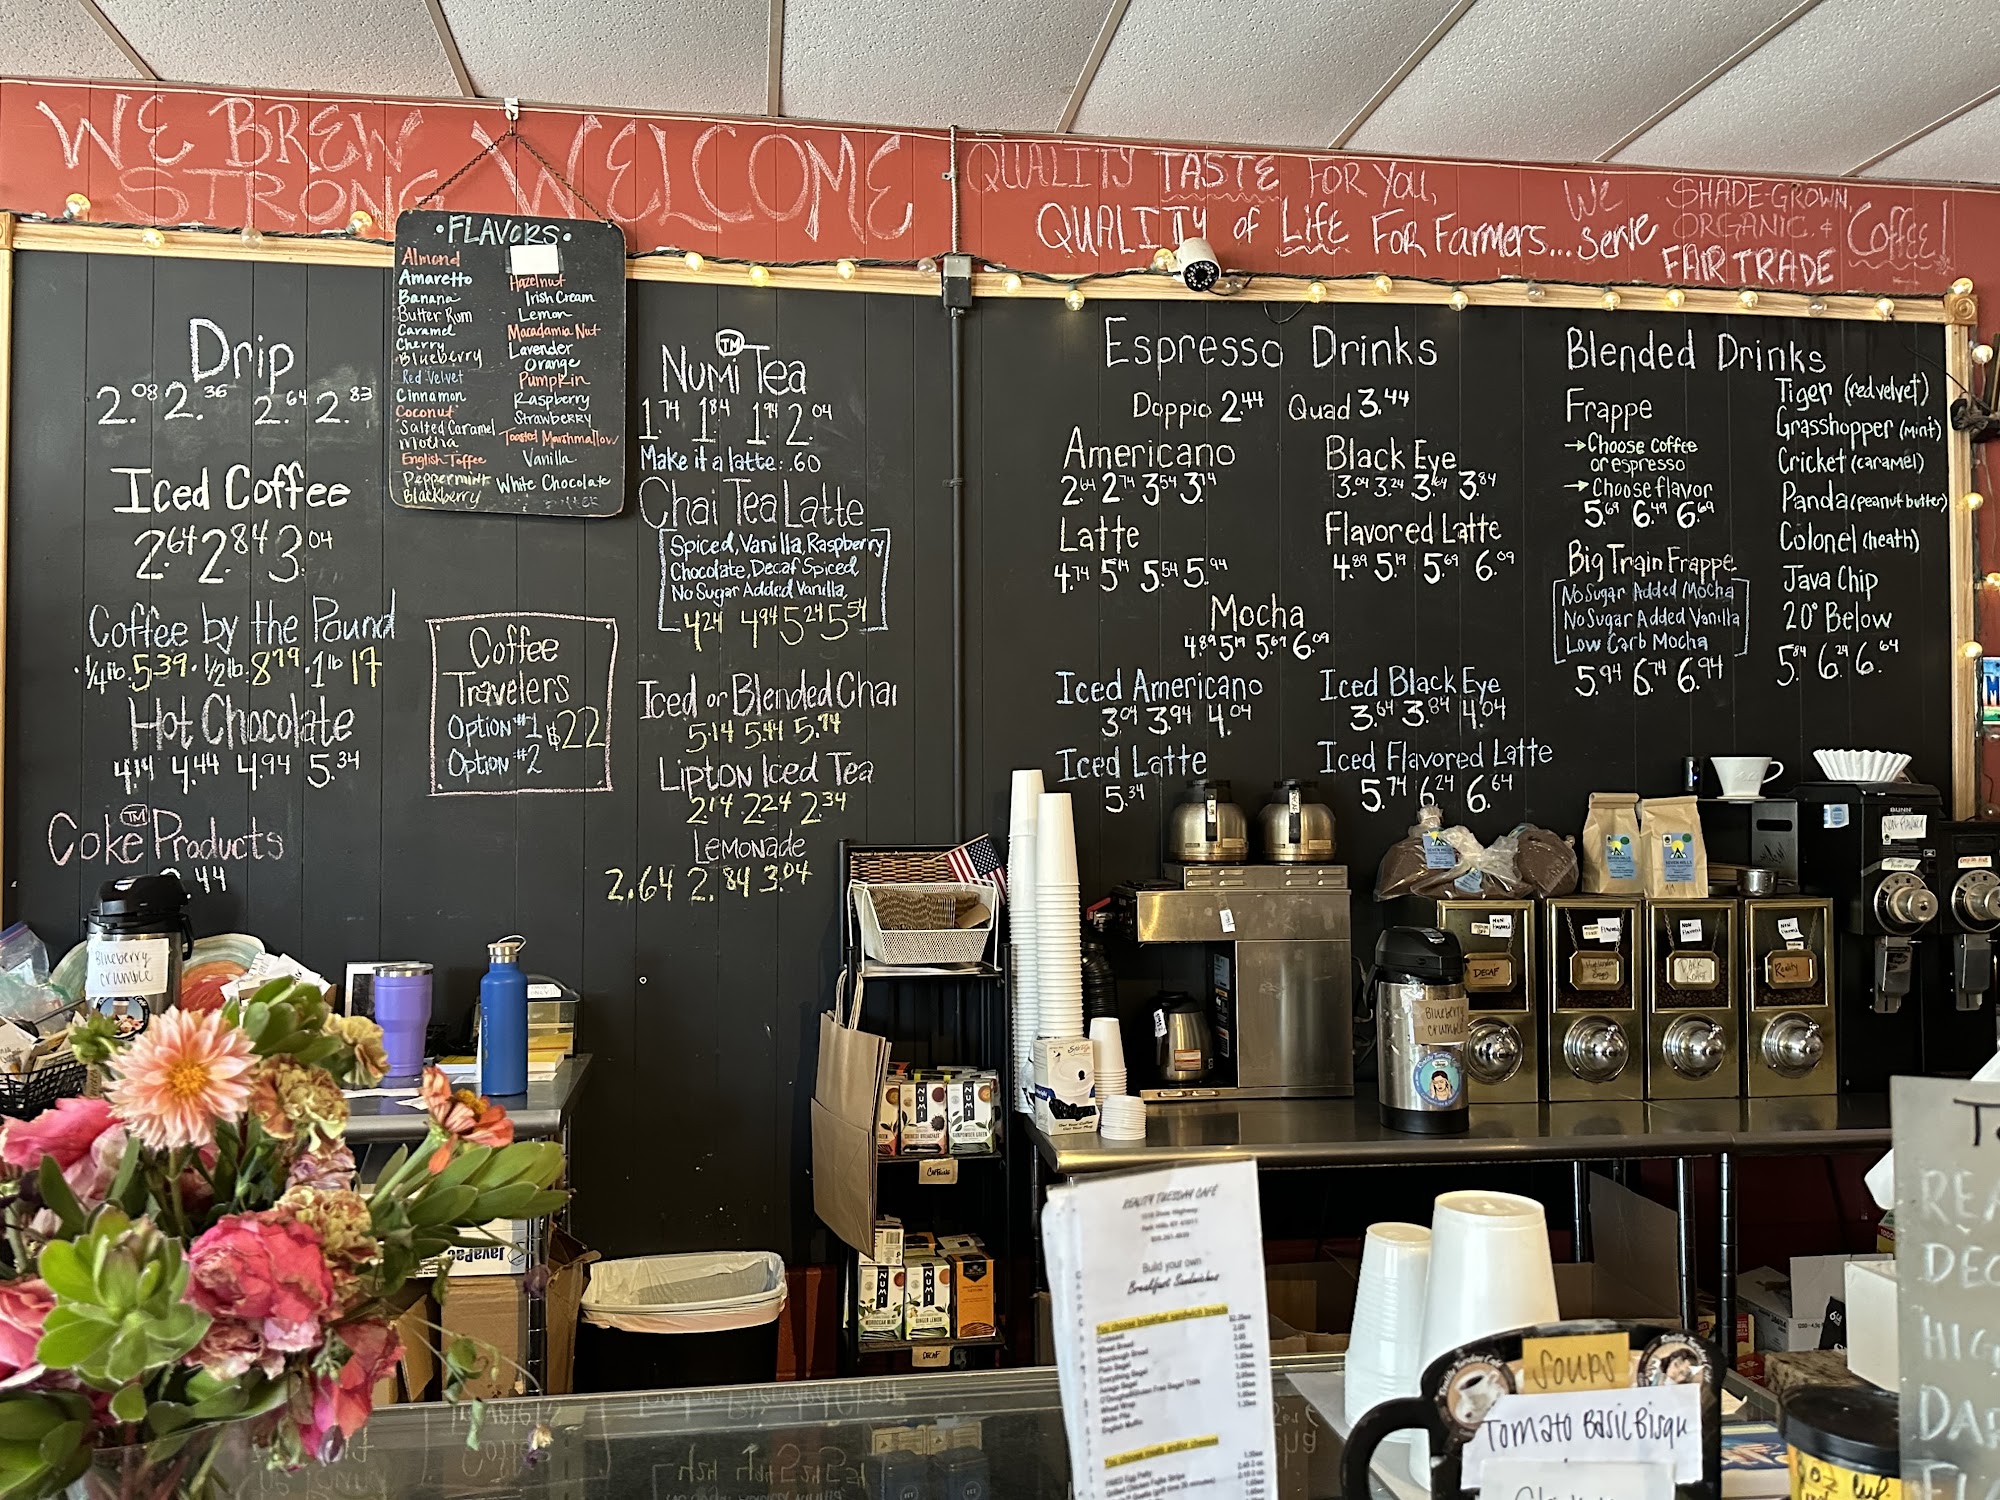 WE BREW
STRONG
WELCOME
QUALITY TASTE FOR YOU,
QUALITY of LIFE FOR Farmers... We serve
SHADE-GROWN,
ORGANIC, &
FAIR TRADE
Coffee!
• FLAVORS •
Almond
Amaretto
Banana
Butter Rum
Caramel
Cherry
Blueberry
Red Velvet
Cinnamon
Coconut
Salted Caramel
Mocha
English Toffee
Peppermint
Blackberry
Hazelnut
Irish Cream
Lemon
Macadamia Nut
Lavender
Orange
Pumpkin
Raspberry
Strawberry
Toasted Marshmallow
Vanilla
White Chocolate
Drip
2.08 2.36 2.64 2.83
Iced Coffee
2.64 2.84 3.04
Coffee by the Pound
• 1/4 lb. 5.39 • 1/2 lb. 8.79 • 1 lb 17
Hot Chocolate
4.14 4.44 4.94 5.34
Coke™ Products
.44
Coffee
Travelers
Option #1 $22
Option #2
Numi™ Tea
1.74 1.84 1.94 2.04
Make it a latte: .60
Chai Tea Latte
Spiced, Vanilla, Raspberry
Chocolate, Decaf Spiced,
No Sugar Added Vanilla,
4.24 4.94 5.24 5.54
Iced or Blended Chai
5.14 5.44 5.74
Lipton Iced Tea
2.14 2.24 2.34
Lemonade
2.64 2.84 3.04
Espresso Drinks
Doppio 2.44 Quad 3.44
Americano
2.64 2.74 3.54 3.74
Black Eye
3.04 3.24 3.64 3.84
Latte
4.74 5.14 5.54 5.94
Flavored Latte
4.89 5.19 5.69 6.09
Mocha
4.89 5.19 5.69 6.09
Iced Americano
3.04 3.94 4.04
Iced Black Eye
3.64 3.84 4.04
Iced Latte
5.34
Iced Flavored Latte
5.74 6.24 6.64
Blended Drinks
Frappe
→ Choose coffee
or espresso
→ Choose flavor
5.69 6.49 6.69
Big Train Frappe
No Sugar Added Mocha
No Sugar Added Vanilla
Low Carb Mocha
5.94 6.74 6.94
Tiger (red velvet)
Grasshopper (mint)
Cricket (caramel)
Panda (peanut butter)
Colonel (heath)
Java Chip
20° Below
5.84 6.24 6.64
Blueberry
crumble
Blueberry
crumble
SEVEN HILLS
BUNN
NON-FLAVORED
DECAF
DARK ROAST
Reality
NUMI
GUNPOWDER GREEN
CAFFEINE
NUMI
MOROCCAN MINT
NUMI
GINGER LEMON
DECAF
JAVAPAC
REALITY TUESDAY CAFÉ
Build your own
Breakfast Sandwiches
You choose breakfast sandwich breads
Croissant
Wheat Bread
Sourdough Bread
Plain Bagel
Everything Bagel
Asiago Bagel
Wheat Wrap
White Pita
English Muffin
SOUPS
Tomato Basil Bisque